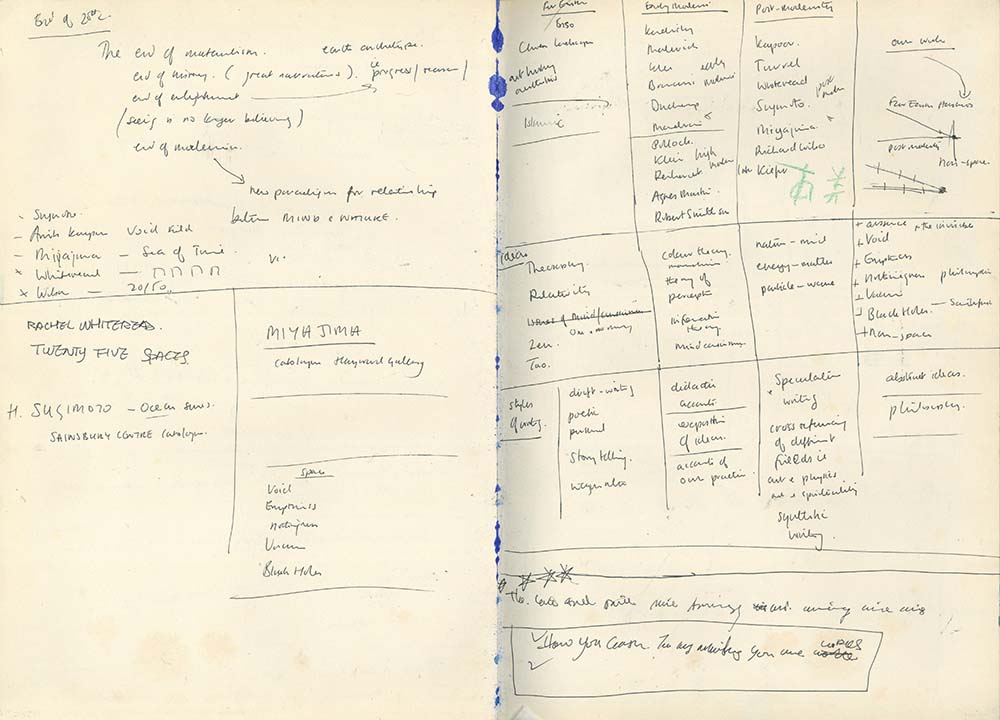 End of 20thC.
The end of materialism.
end of history. (great narratives). ie progress/reason/
end of enlightenment
(seeing is no longer believing)
end of modernism.
new paradigm for relationship
between MIND & NATURE.
- Sugimoto.
- Anish Kapoor Void Field
- Miyajima - Sea of Time.
x Whiteread
x Wilson - 20/50.
RACHEL WHITEREAD.
TWENTY FIVE SPACES.
H. SUGIMOTO - Ocean series.
SAINSBURY CENTRE Catalogue.
MIYAJIMA
Catalogue Hayward Gallery
Space
Void
Emptiness
Nothingness
Vacuum
Black Holes
Far Eastern
Chinese landscape
Islamic
Early Modern
Kandinsky
Malevich
Klee early
Brancusi modern
Duchamp
Mondrian
Pollock.
Klein high
Reinhardt modern
Agnes Martin.
Robert Smithson
Post-modernity
Kapoor.
Turrell
Whiteread post
Sugimoto. modern
Miyajima.
Richard Wilson
Kiefer
our work
Far Eastern
Post-modernity
Non-space.
Ideas
Theosophy
Relativity
Zen.
Tao.
Colour theory.
theory of
perception
information
theory
nature - mind
energy - matter
particle - wave
+ absence + the invisible
+ Void
+ Emptiness
+ Nothingness philosophy
+ Vacuum
+ Black Holes - Scientific
+ Non-space
styles
of writing.
direct-writing
poetic
personal
Story telling.
didactic
accounts
exposition
of ideas.
accounts of
our practice
Speculative
writing
cross referencing
of different
fields ie
art & physics
art & spirituality
synthetic
writing
abstract ideas.
philosophy.
How you learn. In any activity you are